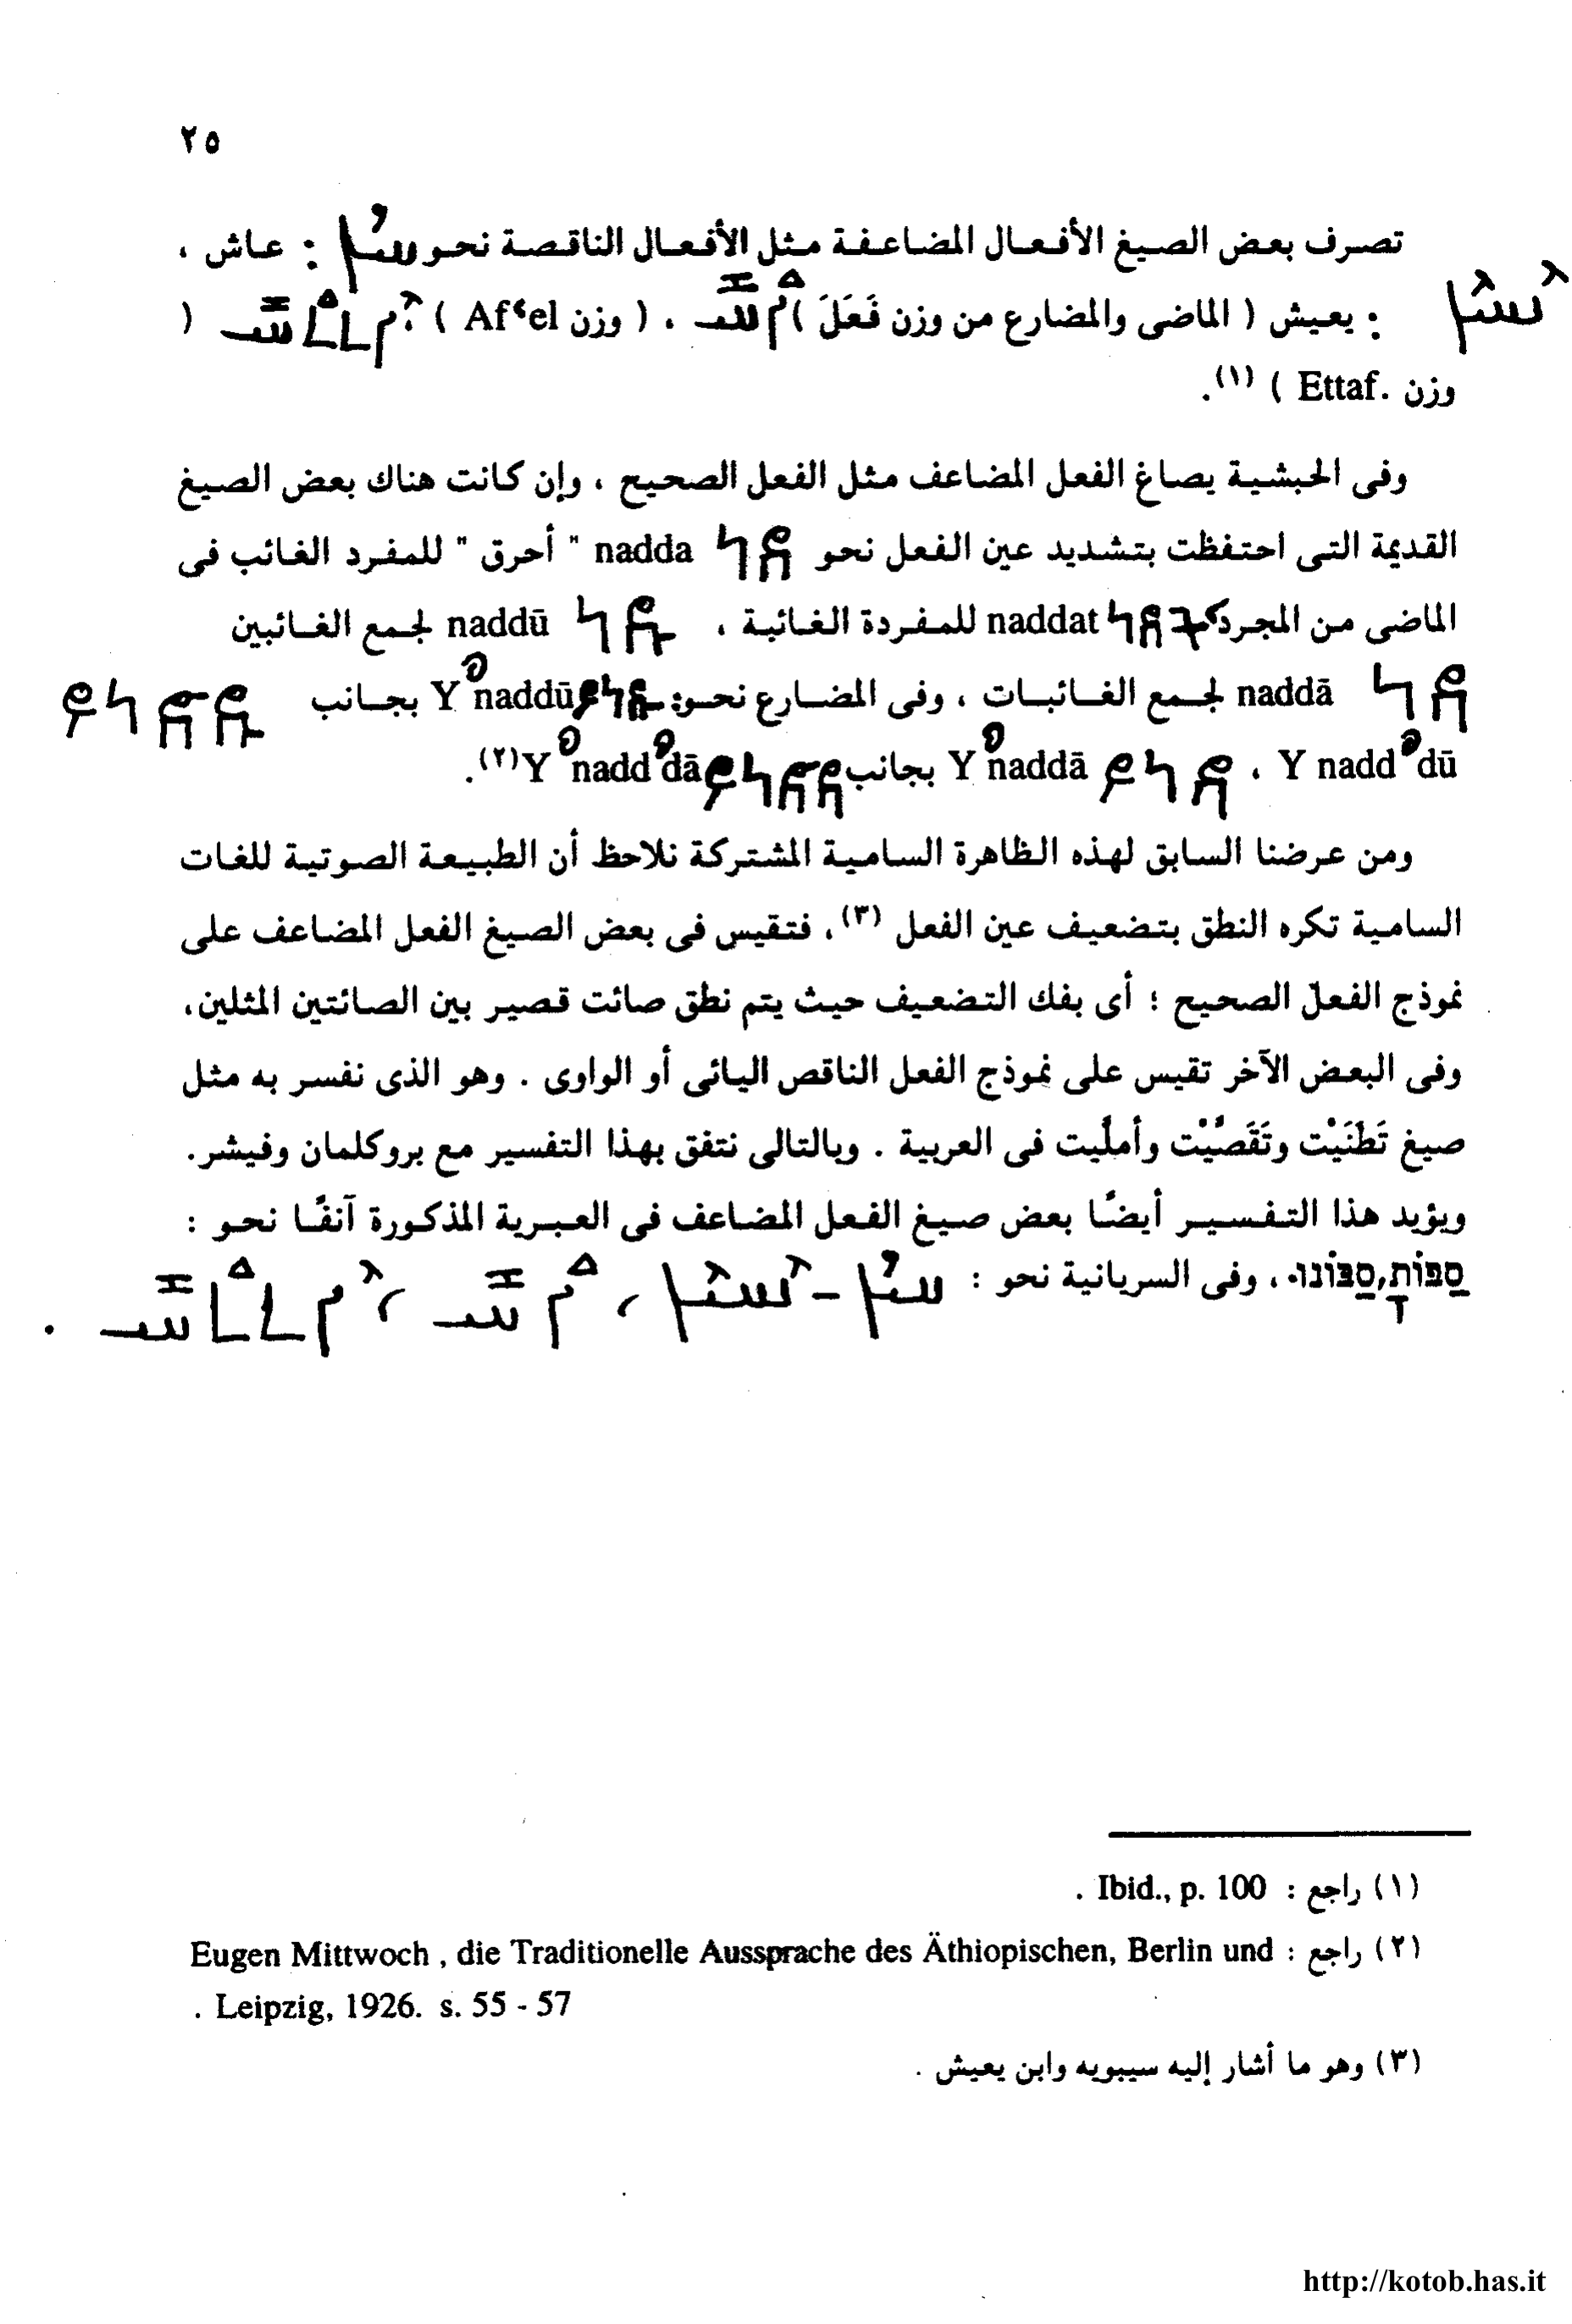 ٢٥
تصرف بعض الصيغ الأفعال المضاعفة مثل الأفعال الناقصة نحو : عاش ،
: يعيش ( الماضى والمضارع من وزن فَعَلَ ) ، ( وزن Af‘el ) ، (
وزن Ettaf. ) (١).
وفى الحبشية يصاغ الفعل المضاعف مثل الفعل الصحيح ، وإن كانت هناك بعض الصيغ
القديمة التى احتفظت بتشديد عين الفعل نحو ነደ nadda " أحرق " للمفرد الغائب فى
الماضى من المجرد ، ነደት naddat للمفردة الغائبة ، ነዱ naddū لجمع الغائبين
ነዳ naddā لجمع الغائبات ، وفى المضارع نحو: ይነዱ Yᵊnaddū بجانب ይነድዱ
Y naddᵊdū ، ይነዳ Yᵊnaddā بجانب ይነድዳ Yᵊnaddᵊdā (٢).
ومن عرضنا السابق لهذه الظاهرة السامية المشتركة نلاحظ أن الطبيعة الصوتية للغات
السامية تكره النطق بتضعيف عين الفعل (٣)، فتقيس فى بعض الصيغ الفعل المضاعف على
نموذج الفعل الصحيح ؛ أى بفك التضعيف حيث يتم نطق صائت قصير بين الصائتين المثلين،
وفى البعض الآخر تقيس على نموذج الفعل الناقص اليائى أو الواوى . وهو الذى نفسر به مثل
صيغ تَظَنَيْت وتَقَصَّيْت وأملَّيت فى العربية . وبالتالى نتفق بهذا التفسير مع بروكلمان وفيشر.
ويؤيد هذا التفسير أيضًا بعض صيغ الفعل المضاعف فى العبرية المذكورة آنفًا نحو :
، وفى السريانية نحو :
(١) راجع : Ibid., p. 100 .
(٢) راجع : Eugen Mittwoch , die Traditionelle Aussprache des Äthiopischen, Berlin und
Leipzig, 1926. s. 55 - 57 .
(٣) وهو ما أشار إليه سيبويه وابن يعيش .
http://kotob.has.it